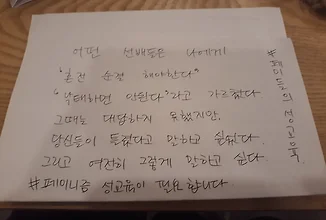 어떤 선배들은 나에게
"혼전 순결 해야한다"
"낙태하면 안된다"라고 가르쳤다
그때는 대답하지 못했지만,
당신들이 틀렸다고 말하고 싶었다.
그리고 여전히 그렇게 말하고 싶다.
#페미니즘 성교육이 필요합니다.
#페미들의 성교육